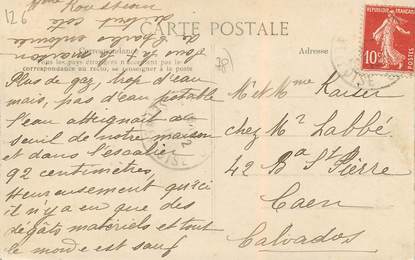 126
CARTE POSTALE
Correspondance
Tous les pays étrangers n'acceptent pas la
correspondance au recto, se renseigner à la poste
Adresse
RÉPUBLIQUE FRANÇAISE
10c
POSTES
Plus de gaz, trop d'eau
mais, pas d'eau potable
l'eau atteignait au
seuil de notre maison
et dans l'escalier
92 centimètres,
Heureusement qu'ici
il n'y a eu que des
dégâts matériels et tout
le monde est sauf
Mr et Mme
chez Mr Labbé
42 Bd St Pierre
Caen
Calvados